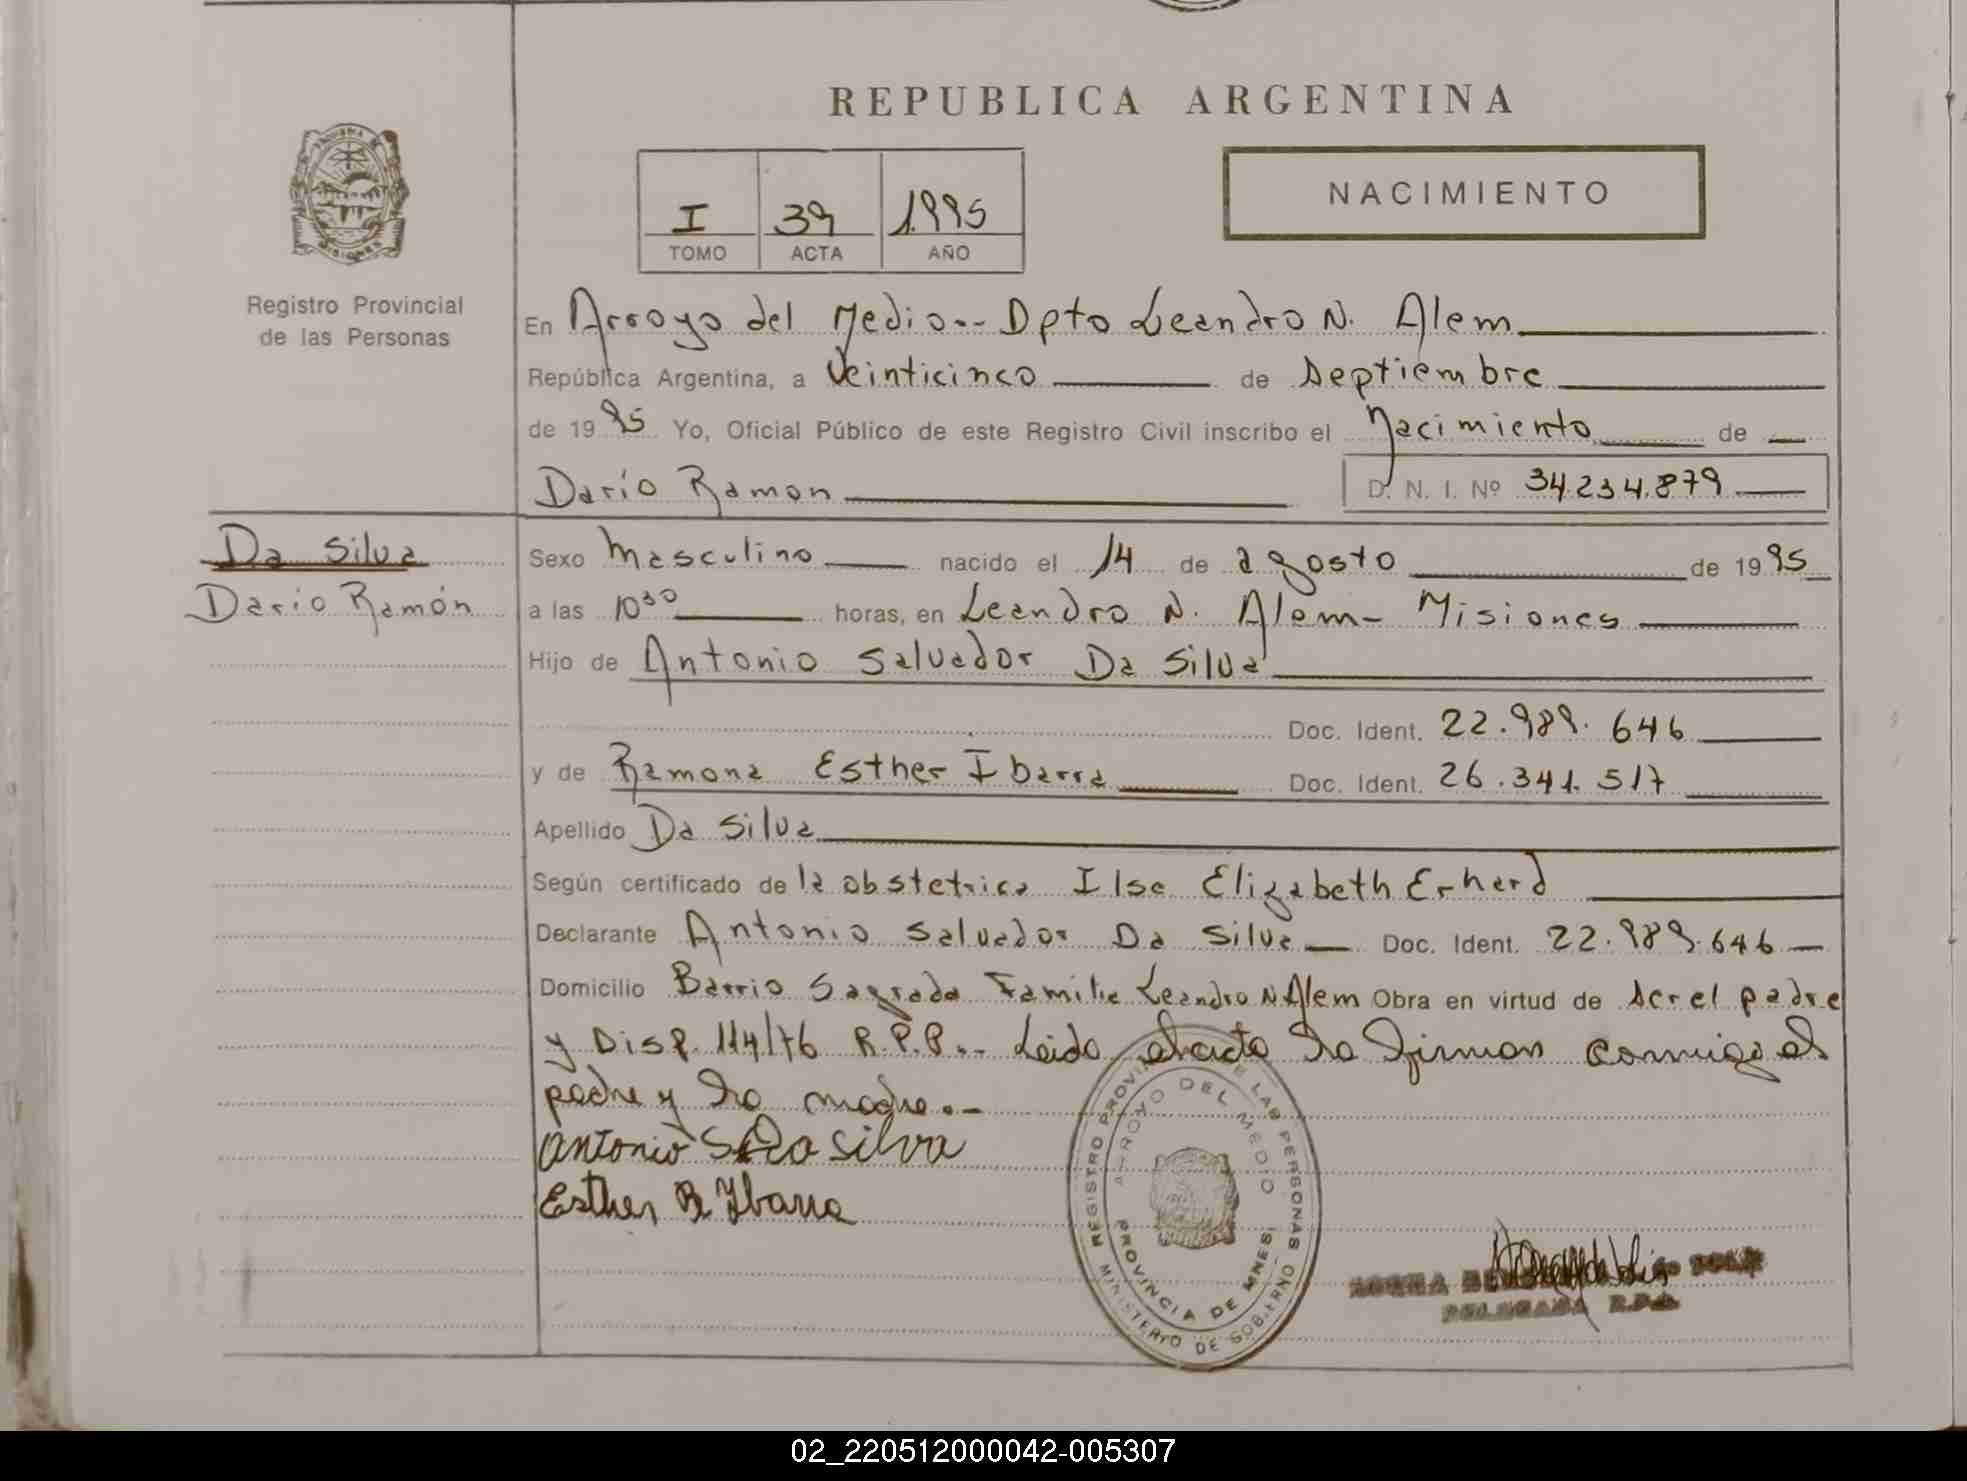 REPUBLICA ARGENTINA
NACIMIENTO
I 39 1.995
TOMO ACTA AÑO
PROVINCIA DE MISIONES
Registro Provincial
de las Personas
En Arroyo del Medio.- Dpto Leandro N. Alem
República Argentina, a Veinticinco de Septiembre
de 1995 Yo, Oficial Público de este Registro Civil inscribo el Nacimiento de
Darío Ramon D. N. I. Nº 34.234.879
Da Silva
Dario Ramón
Sexo Masculino nacido el 14 de agosto de 1995
a las 10³⁰ horas, en Leandro N. Alem - Misiones
Hijo de Antonio Salvador Da Silva
Doc. Ident. 22.989.646
y de Ramona Esther Ibarra Doc. Ident. 26.341.517
Apellido Da Silva
Según certificado de la obstetrica Ilse Elizabeth Erhard
Declarante Antonio Salvador Da Silva Doc. Ident. 22.989.646
Domicilio Barrio Sagrada Familia Leandro N Alem Obra en virtud de ser el padre
y Disp. 114/76 R.P.P.- Leido el acta la firman conmigo el
padre y la madre.-
Antonio S Da Silva
Esther R Ibarra
REGISTRO PROVINCIAL DE LAS PERSONAS
ARROYO DEL MEDIO
PROVINCIA DE MNES.
MINISTERIO DE GOBIERNO
DELEGADA R.P.P.
02_220512000042-005307